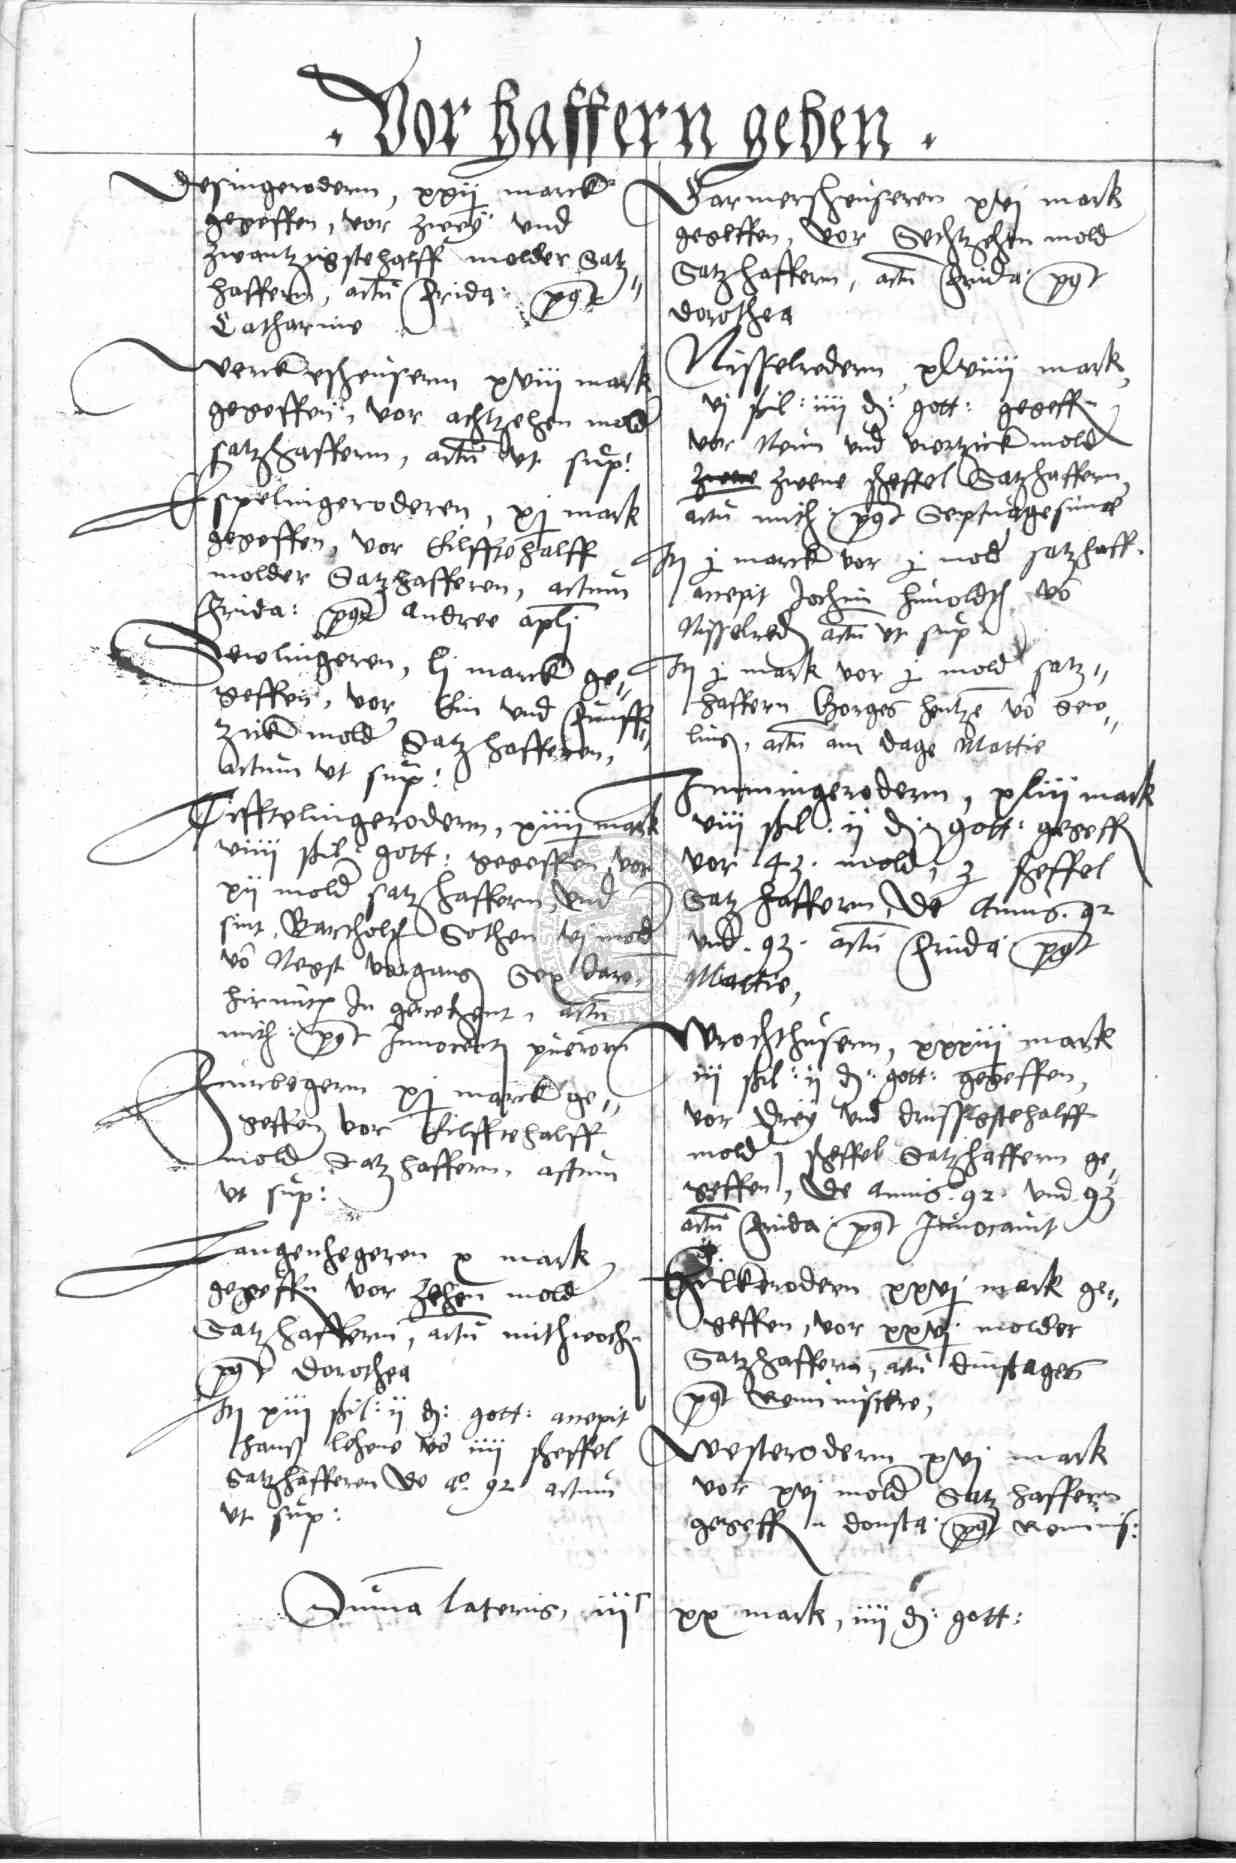 . Vor haffern geben .
Desingerodern, xxij marck
gegeffen, vor zwey und
zwantzigstehalff molder Satz
haffern, actu Frida: post
Catharine
Werckeshusern xviii mark
gegeffen, vor achtzehen mold
satzhaffern, actu ut sup:
Espelingeroderen, xj mark
gegeffen, vor Eilfftehalff
molder Satzhafferen, actum
Frida: post Andree apli
Gewlingeren, lj marck ge
geffen, vor Ein und Funff
zick mold Satzhafferen,
actum ut sup:
Tifftelingerodern, xiiij mark
viiii schil: gott: gegeffen, vor
xij mold satzhaffern, und
sint, Bartholt Sothen vj mold
vo Negst vorgang
in gerekent, actu
mith: post Innocent puerorum
xj marck ge
geffen vor Eilfftehalff
mold Satzhaffern, actum
ut sup:
Langenhegeren x mark
gegeffn vor zehen mold
Satzhaffern, actu mithwoch
post Dorothea
It xiii schil: ij d: gott: accepit
hanss lehene vo iiii scheffel
Satzhafferen de ao 92 actum
ut sup:
Garmershusern xvj mark
gegeffen, vor Sechtzehen mold
Satzhaffern, actu Frida: post
dorothea
Nisselredern, xlviiii mark
vj schil: iiii d: gott: gegeffn
vor Neun und viertzick mold
zwene zwene scheffel Satzhaffern
actu mith: post Septuagesime
It j marck vor j mold satzhaff.
accepit Jochim hunoldt vo
Nisselred actu ut sup
It j mark vor j mold satz
haffern Gorges hentze vo Gew
ling, actu am dage Mattie
Immingerodern, xliii mark
viii schil. ij d: gott: gegeff
vor 43. mold, 3 scheffel
Satzhaffern, De Annis. 92
und. 93. actu Frida post
Mattie,
Wrochthusern, xxxiii mark
iii schil: ij d: gott: gegeffen,
vor Drey und drissigstehalff
mold j scheffel Satzhaffern ge
geffen, De Annis. 92. und 93
actu Frida post Invocavit
Hilkerodern xxvj mark ge
geffen, vor xxvj molder
Satzhaffern, actu dinstages
post Reminiscere,
Westerodern xvj mark
vor xvj mold Satzhaffern
gegeff n donsta: post Reminis:
Suma lateris, iiic xx mark, iiii d: gott: